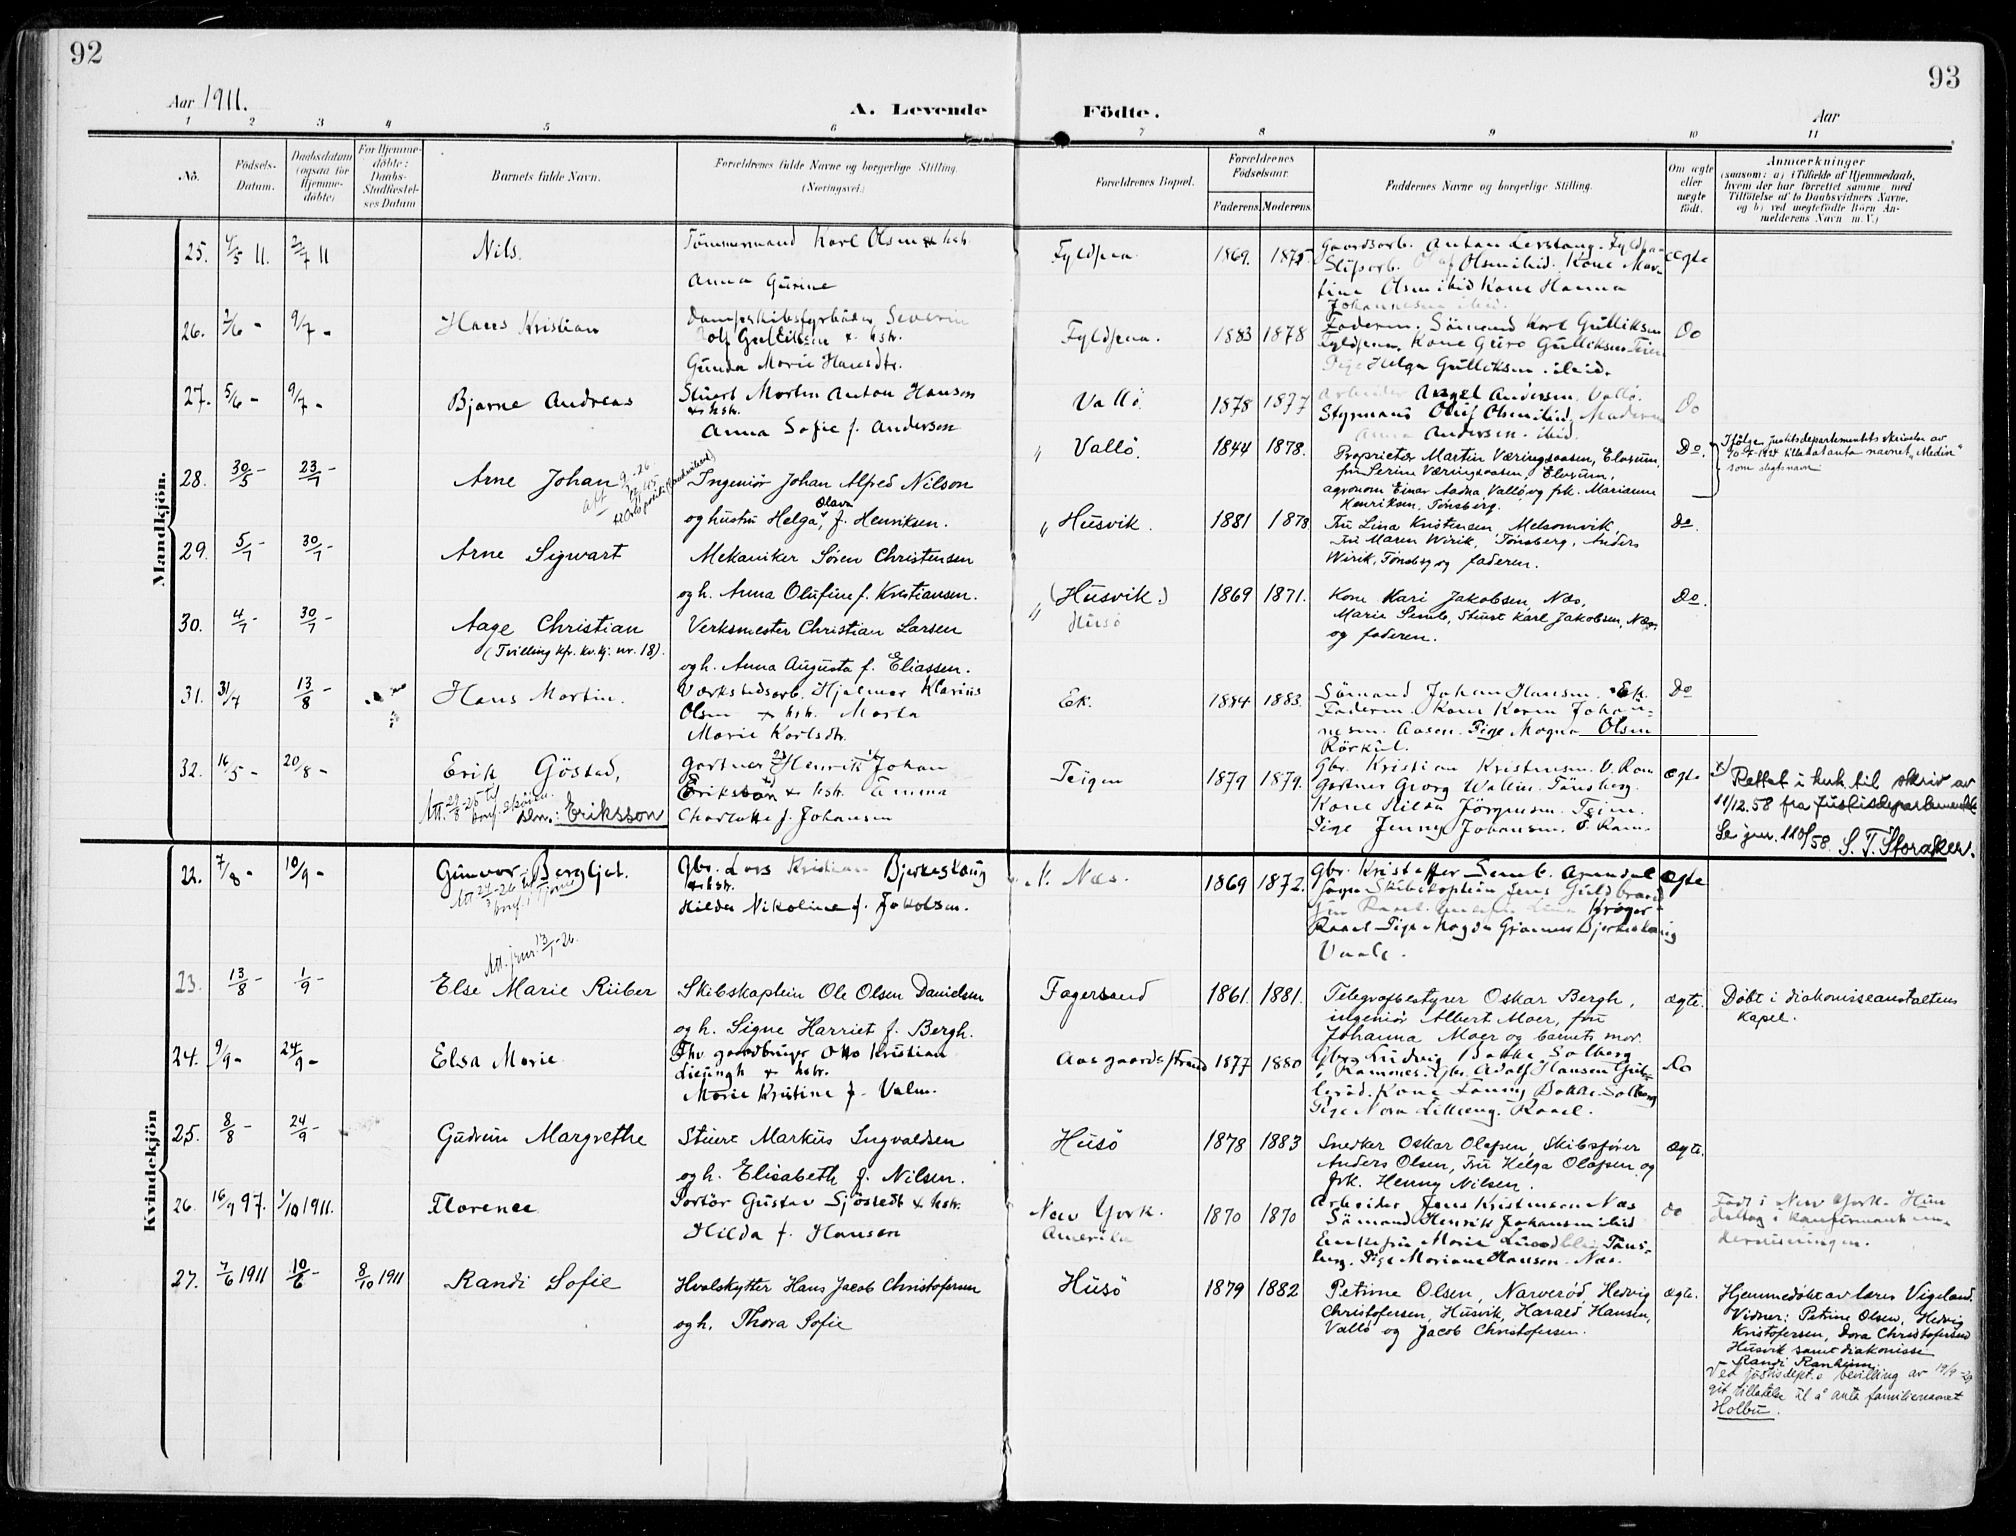 92
93
Aar 1911.
A. Levende
Födte.
Aar
1 2 3 4 5 6 7 8 9 10 11
No.
Födsels-
Datum.
Daabsdatum
(ogsaa for
Hjemme-
döbte)
For Hjemme-
döbte:
Daabs-
Stadfæstel-
ses Datum
Barnets fulde Navn.
Forældrenes fulde Navne og borgerlige Stilling.
(Næringsvei.)
Forældrenes Bopæl.
Forældrenes
Födselsaar.
Faderens. Moderens.
Faddernes Navne og borgerlige Stilling.
Om ægte
eller
uægte
födt.
Anmærkninger
(saasom: a) i Tilfælde af Hjemmedaab,
hvem der har forrettet samme, med
Tilföielse af to Daabsvidners Navne.
og b) ved uægtefödte Börn An-
melderens Navn m. V.)
Mandkjön.
25. 4/5 11. 2/7 11 Nils. Tömmermand Karl Olsen & hstr.
Anna Gurine
Fyldpaa. 1869. 1875
Olsen ibid. Kone Mar-
tine Olsen ibid Kone Hanna
Johannesen ibid.
Ægte
26. 2/6 - 9/7 - Hans Kristian
Severin
Rolf Gulliksen & hstr.
Gunda Marie Hansdtr.
Fyldpaa. 1883 1878
Faderen. Sömand Karl Gulliksen
Fyldpaa, Kone Guro Gulliksen Teien
Pige Helga Gulliksen ibid.
Do
27. 5/6 - 9/7 - Bjarne Andreas
Stuert Morten Anton Hanson
& hstr.
Anna Sofie f. Andersen
Vallö. 1878 1877
Arbeider Angel Andersen Vallö.
Styrmand Oluf Olsen ibid, Moderen
Anna Andersen. ibid.
Do
28. 30/5 - 23/7 Arne Johan
Ingeniør Johan Alfred Nilson
og hustru Helga Olava, f. Henriksen.
" Vallö. 1844 1878.
Proprietær Martin Væringsaasen, Elverum,
fru Serine Væringsaasen, Elverum,
agronom Einar Aadna, Vallø og frk. Marianne
Henriksen, Tønsberg.
Do.
Ifølge justitsdepartementets skrivelse av
tillat at anta navnet "Medin"
som slegtsnavn
29. 5/7 30/7 Arne Sigvart
Mekaniker Søren Christensen
og h. Anna Olufine f. Kristiansen.
" Husvik. 1881 1878
Fru Lina Kristensen, Melsomvik,
Fru Maren Wirik, Tønsberg, Anders
Wirik, Tønsberg og faderen.
Do.
30. 4/7 30/7 Aage Christian
(Tvilling kfr. kv. kj. nr. 18).
Verksmester Christian Larsen
og h. Anna Augusta f. Eliassen.
" (Husvik.)
Husö
1869 1871.
Kone Kari Jakobsen, Næs,
Marie Semb, Stuert Karl Jakobsen, Næs,
og faderen.
Do.
31. 31/7 13/8 Hans Martin.
Værkstedsarb. Hjalmar Klarius
Olsen & hstr. Marta
Marie Karlsdtr.
Ek. 1884 1883.
Sömand Johan Hansen. Ek.
Faderen. Kone Karen Johan-
nesen. Aasen. Pige Magna Olsen
Rörkul.
Do
32. 16/5 - 20/8 - Erik Göstad,
Eriksson
Gartner Henrik Johan
Eriksson & hstr. Emma
Charlotte f. Johansen
Teigen 1879 1879.
Gbr. Kristian Kristensen. V. Ram
Gartner Georg Wallin. Tönsberg.
Kone Hilda Jörgensen. Teien.
Pige Jenny Johansen. Ö. Ram.
ægte
x) Rettet i h.h.t. til skriv av
11/12.58 fra Justisdepartementet
Se jnr. 1101/58. S. T. Storaker.
Kvindekjön
22. 7/8 - 10/9 - Gunvor Bergljot.
Gbr. Lars Kristian Bjerkeskaug
& hstr.
Hilda Nikoline f. Jakobsen.
N. Næs. 1869 1872.
Gbr. Kristoffer Semb. Arendal
Skibskaptein Jens Guldbrand
Kröger
Vaale.
Ægte
23. 13/8 - 1/9 - Else Marie Riiber
Skibskaptein Ole Olsen Danielsen
og h. Signe Harriet f. Bergh.
Fagersand 1861. 1881.
Telegrafbestyrer Oskar Bergh,
ingeniør Albert Moer, fru
Johanna Moer og barnets mor.
ægte.
Døbt i diakonisseanstaltens
kapel.
24. 9/9 - 24/9 - Elsa Marie
Fhv gaardbruger Otto Kristian
& hstr.
Marie Kristine f. Valm.
Aasgaardsstrand 1877 1880
Gbr. Ludvig Bakke. Solberg
i Ramnes. Gbr. Adolf Hansen
Kone Fanny Bakke. Solberg
Pige Nora Lilleeng. Rael.
do
25. 8/8 - 24/9 - Gudrun Margrethe
Stuert Markus Ingvaldsen
og h. Elisabeth f. Nilsen.
Husö 1878 1883
Snedker Oskar Olafsen, Skibsfører
Anders Olsen, Fru Helga Olafsen og
frk. Henny Nilsen.
ægte.
26. 16/9 97. 1/10 1911. Florence
Portör Gustav Sjöstedt & hstr.
Hilda f. Hansen
New York.
Amerika
1870 1870
Arbeider Jens Kristensen Næs
Sömand Henrik Johansen ibid
Enkefru Marie Lundblei Töns-
berg. Pige Mariane Hansen. Næs.
do
Födt i New York. Hun
deltog i konfirmantun-
dervisningen.
27. 7/6 1911 10/6 - 8/10 1911 Randi Sofie
Hvalskytter Hans Jacob Christofersen
og h. Thora Sofie
Husö 1879 1882
Petrine Olsen, Narverød, Hedvig
Christofersen, Husvik, Harald Hansen,
Vallö og Jacob Christofersen.
ægte.
Hjemmedöbt av lærer Vigeland.
Vidner: Petrine Olsen, Hedvig
Kristofersen, Dora Christofersen
Husvik samt diakonisse
Randi Ranheim.
Ved justisdept.s bevilling av 19/9-29
git tillatelse til å anta familienavnet
Holbu.